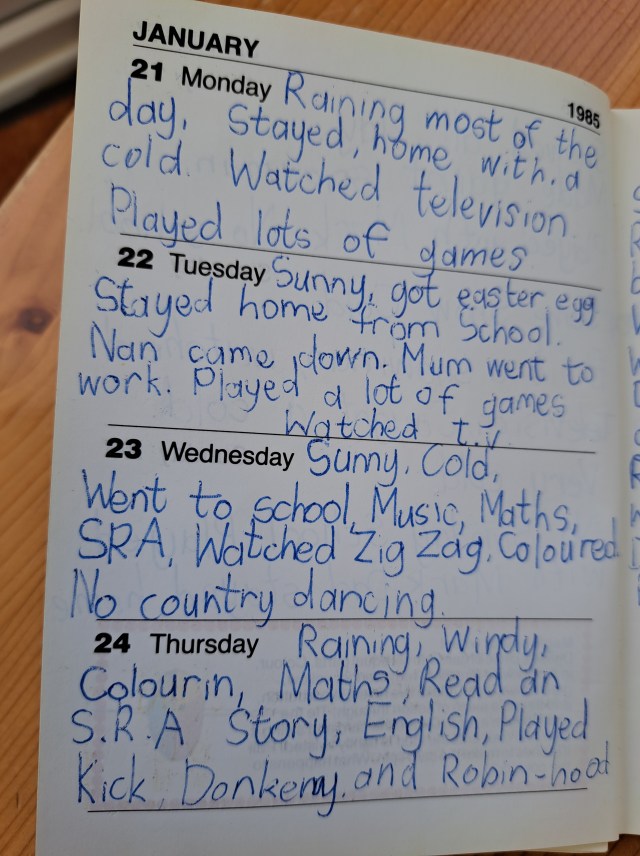 JANUARY
1985
21 Monday Raining most of the
day, Stayed, home with a
cold. Watched television
Played lots of games
22 Tuesday Sunny, got easter egg
Stayed home from School.
Nan came down. Mum went to
work. Played a lot of games
Watched t.v.
23 Wednesday Sunny, Cold,
Went to school, Music, Maths,
SRA, Watched Zig Zag, Coloured
No country dancing.
24 Thursday Raining, Windy,
Colourin, Maths, Read an
S.R.A Story, English, Played
Kick, and Robin-hood